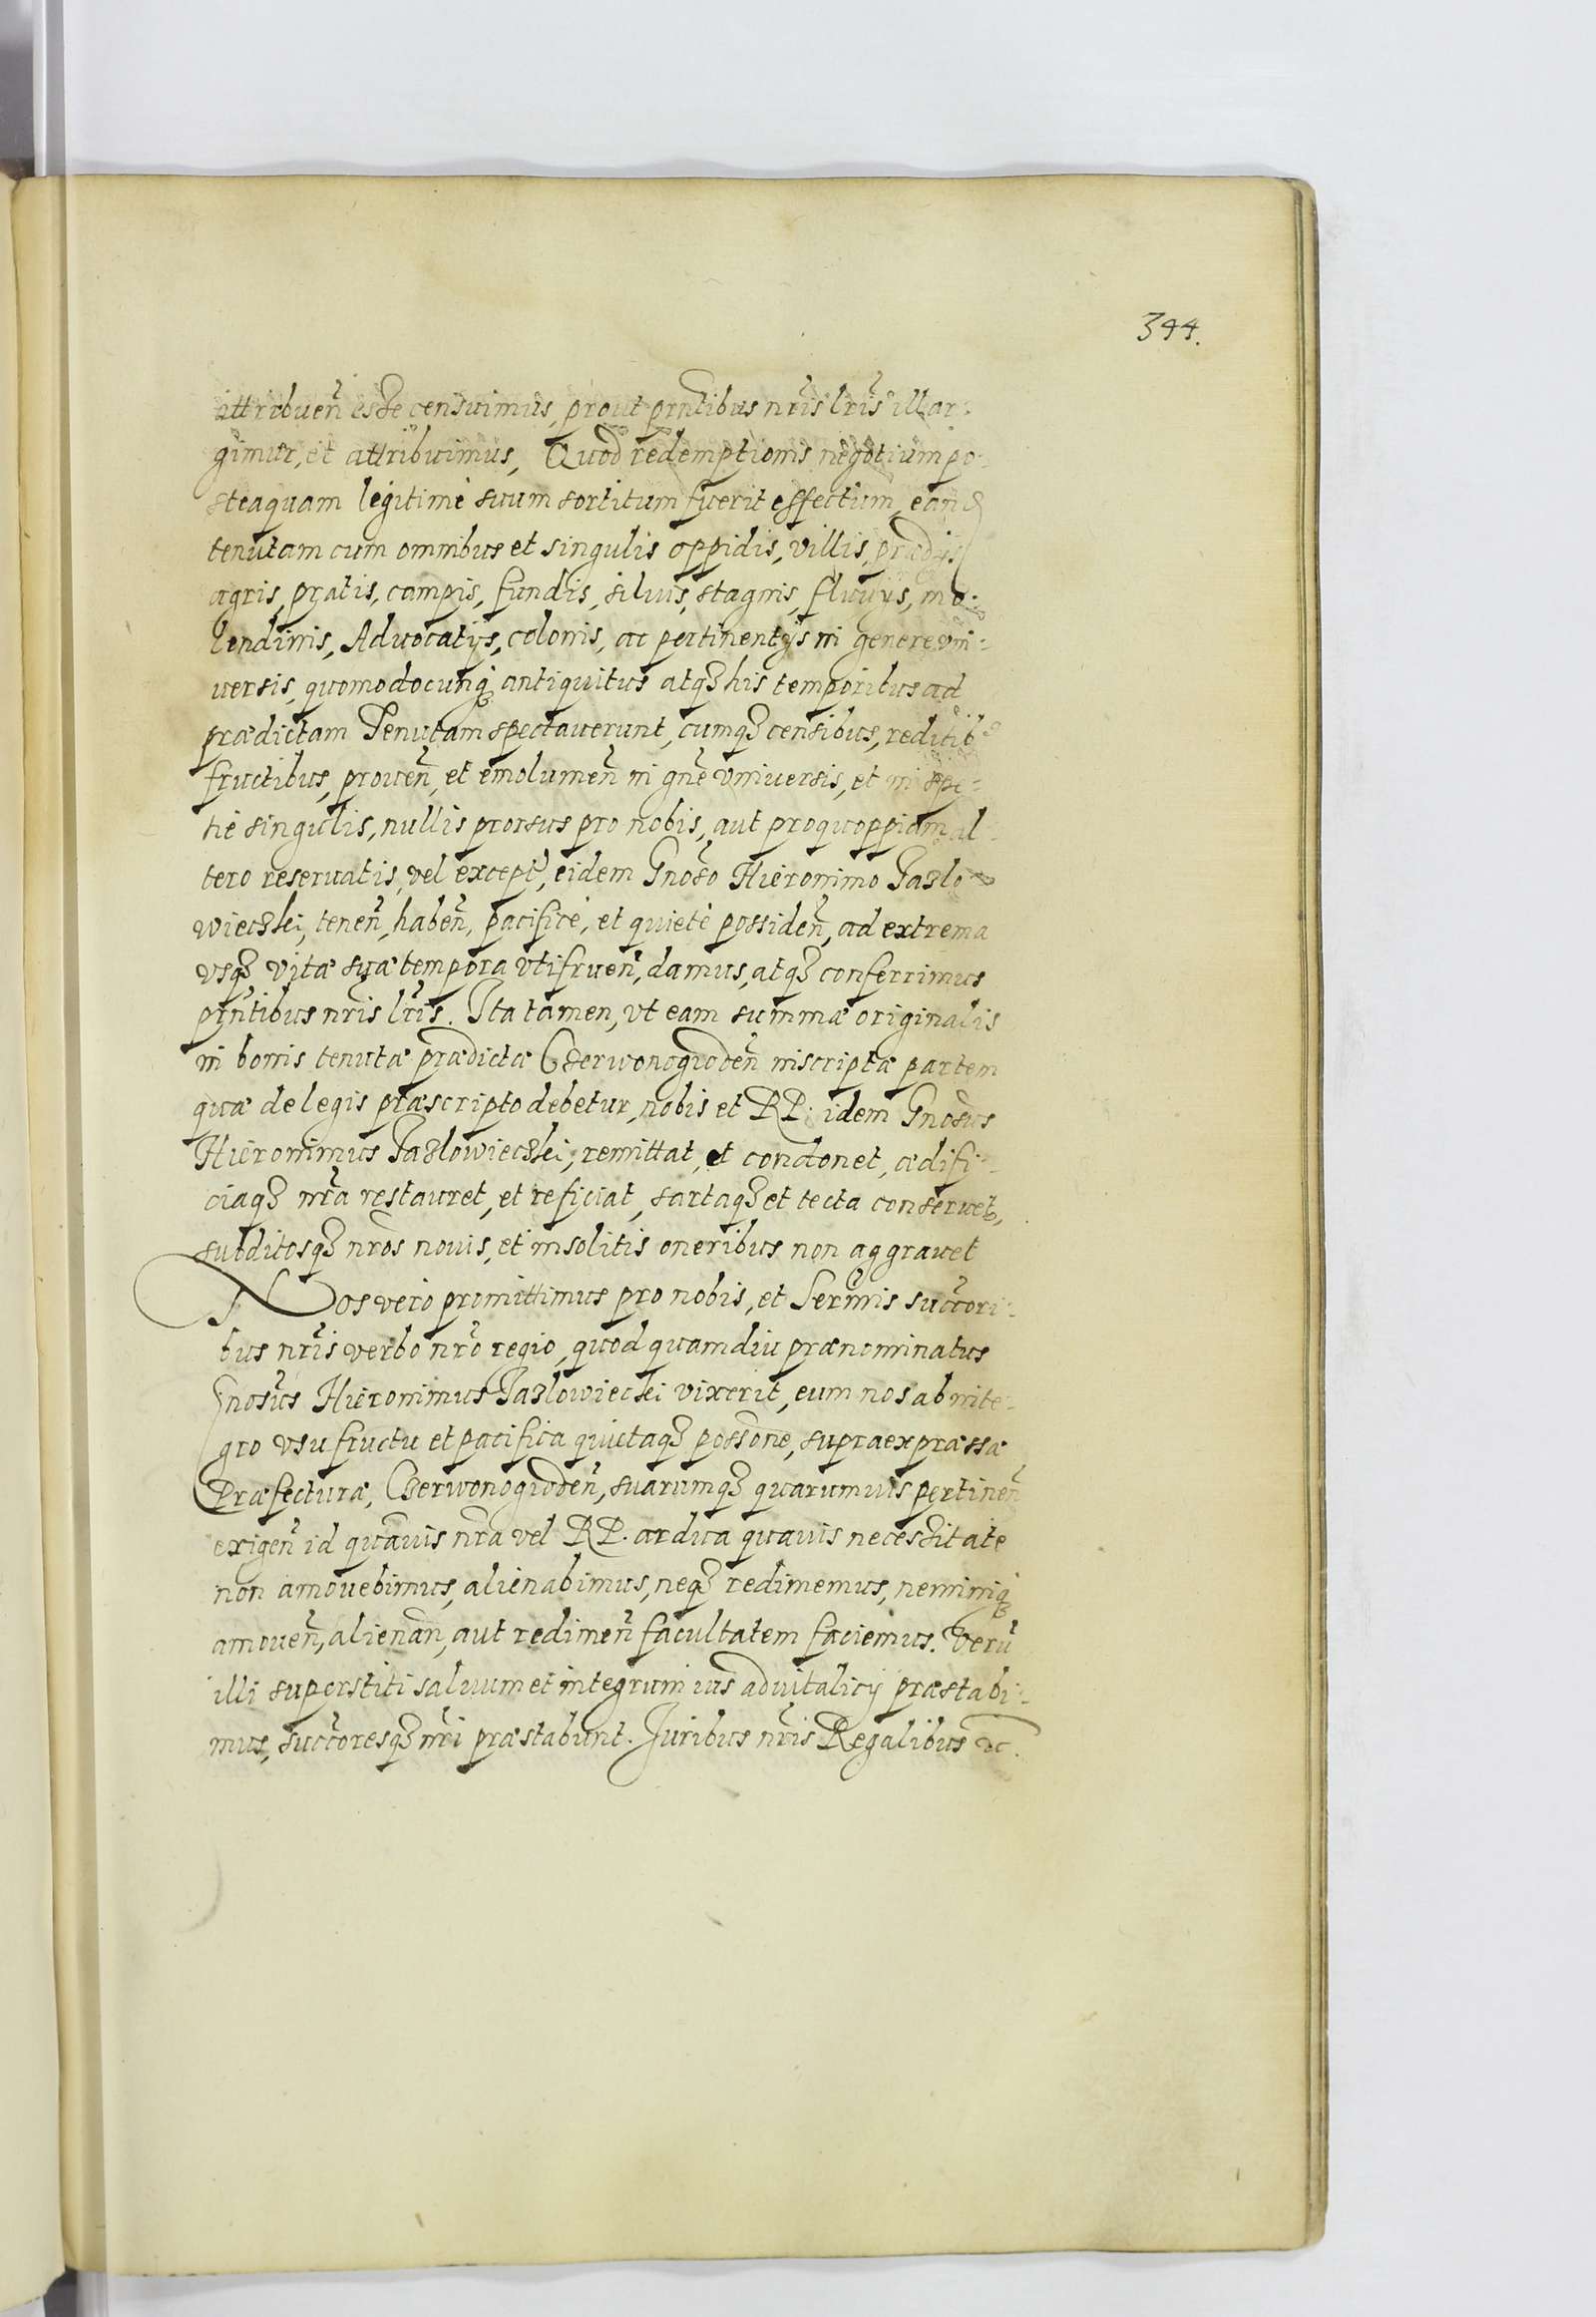 344.
attribuen̄ esse censuimus, prout pn̄tibus nr̄is lr̄is illar-
gimur, et attribuimus, Quod redemptionis negotium po-
steaquam legitimè suum sortitum fuerit effectum, eand
tenutam cum omnibus et singulis oppidis, villis, prædijs
agris, pratis, campis, fundis, siluis, stagnis, fluuijs, mo-
lendinis, Aduocatijs, colonis, ac pertinentijs in genere vni-
uersis, quomodocunq3 antiquitus atq3 his temporibus ad
prædictam Tenutam spectauerunt, cumq3 censibus, reditib9
fructibus, prouen̄, et emolumen̄ in gn̄e vniuersis, et in spe-
tie singulis, nullis prorsus pro nobis, aut pro quoppiam al-
tero reseruatis, vel except, eidem Gnoso Hieronimo Jazlo-
wieczki, tenen̄, haben̄, pacificè, et quietè possiden̄, ad extrema
vsq3 vitæ suæ tempora vtifruen̄, damus, atq3 conferrimus
pn̄tibus nr̄is lr̄is. Ita tamen, vt eam summæ originalis
in bonis tenutæ prædictæ Czerwonogroden̄ inscriptæ partem
quæ de legis præscripto debetur, nobis et RP. idem Gnosus
Hieronimus Jazlowieczki, remittat, et condonet, ædifi-
ciaq3 nr̄a restauret, et reficiat, sartaq3 et tecta conseruet,
subditosq3 nr̄os nouis, et insolitis oneribus non aggrauet
Nos vero promittimus pro nobis, et Serm̄is succori-
bus nr̄is verbo nr̄o regio, quod quamdiu prænominatus
Gnosus Hieronimus Jazlowiecki vixerit, eum nos ab inte-
gro vsufructu et pacifica quietaq3 possōne, supraexpræssæ
Præfecturæ, Czerwonogroden̄, suarumq3 quarumuis pertinen̄
exigen̄ id quāuis nr̄a vel RP. ardua quauis necessitate
non amouebimus, alienabimus, neq3 redimemus, neminiq3
amouen̄, alienan̄, aut redimen̄ facultatem faciemus. Verū
illi superstiti saluum et integrum ius aduitalicij præstabi-
mus, succoresq3 nr̄i præstabunt. Juribus nr̄is Regalibus &c.